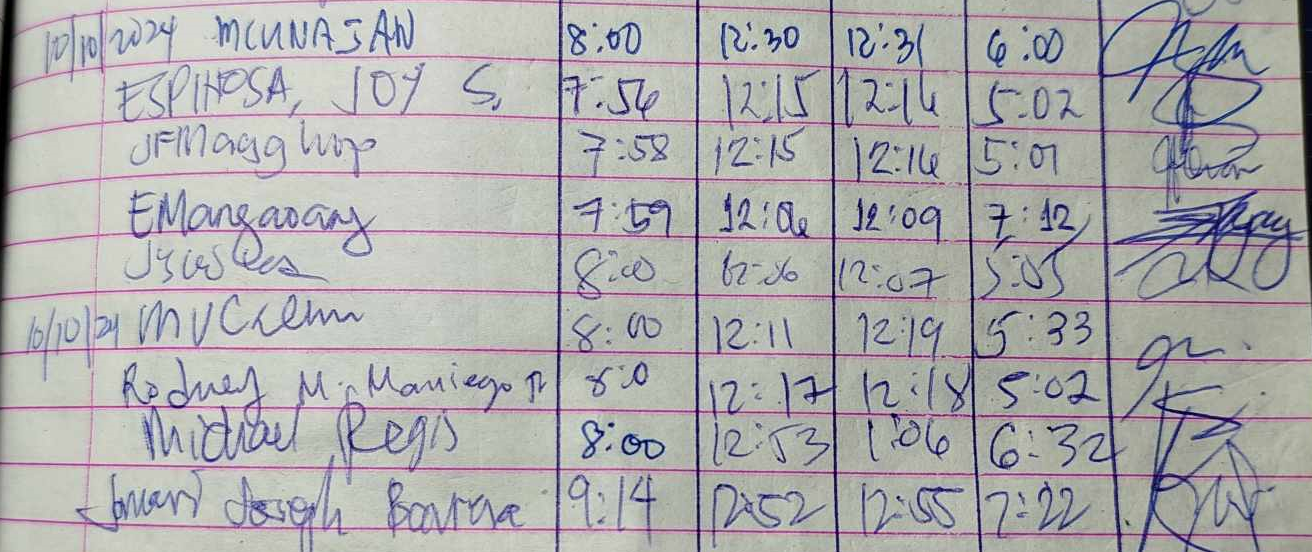 10/10/2024 MCUNAJAN 8:00 12:30 12:31 6:00
ESPINOSA, JOY S. 7:56 12:15 12:16 5:02
7:58 12:15 12:16 5:01
EMangaoang 7:59 12:06 12:09 7:12
8:00 12:06 12:07 5:05
10/10/24 8:00 12:11 12:19 5:33
Rodney M. Maniego Jr 8:0 12:17 12:18 5:02
Michael Regis 8:00 12:53 1:06 6:32
Joseph 9:14 12:52 12:55 7:22